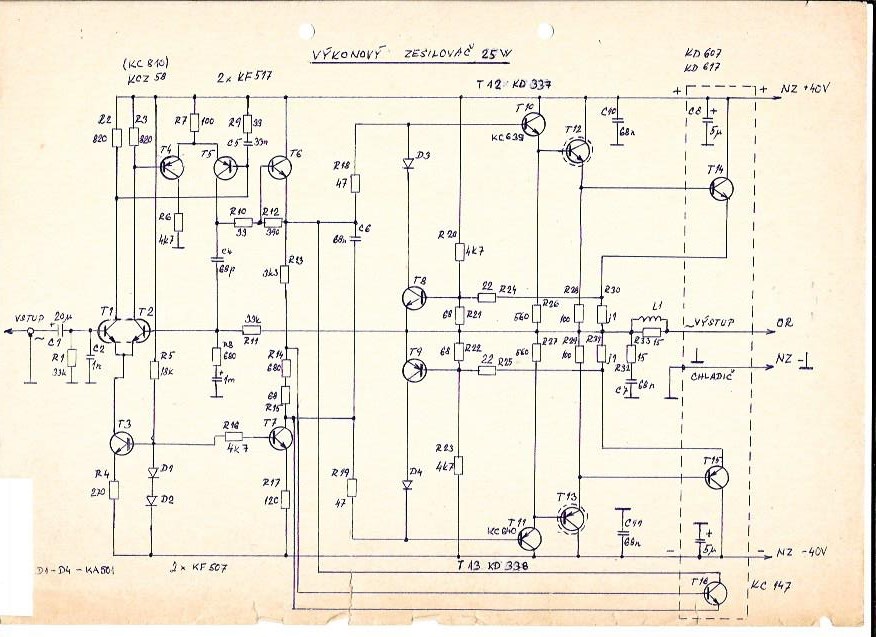 VÝKONOVÝ ZESILOVAČ 25W
(KC 810)
KCZ 58
2x KF 517
T12 KD 337
KD 607
KD 617
R2
820
R3
820
R7
100
R9
33
C5
33n
T4
T5
T6
R6
4k7
R10
33
R12
390
C4
68p
R13
3k3
R18
47
C6
68n
D3
T10
KC639
T12
C10
68n
+
C8
+
5µ
+
NZ +40V
T14
R20
4k7
T8
22
R24
68
R21
R26
560
R28
100
R30
j1
L1
VSTUP
20µ
+
C1
~
R1
33k
C2
1n
T1
T2
R5
18k
33k
R11
R8
680
+
1m
R14
680
68
R15
T9
68
R22
22
R25
R27
560
R29
100
R31
j1
R33
15
R32
15
C7
68n
~ VÝSTUP
OR
NZ
CHLADIČ
T3
R4
270
D1
D2
R16
4k7
T7
R17
120
R19
47
R23
4k7
D4
T11
KC640
T13
C11
68n
T15
+
5µ
-
-
NZ -40V
D1-D4 - KA501
2x KF507
T13 KD 338
T16
KC 147